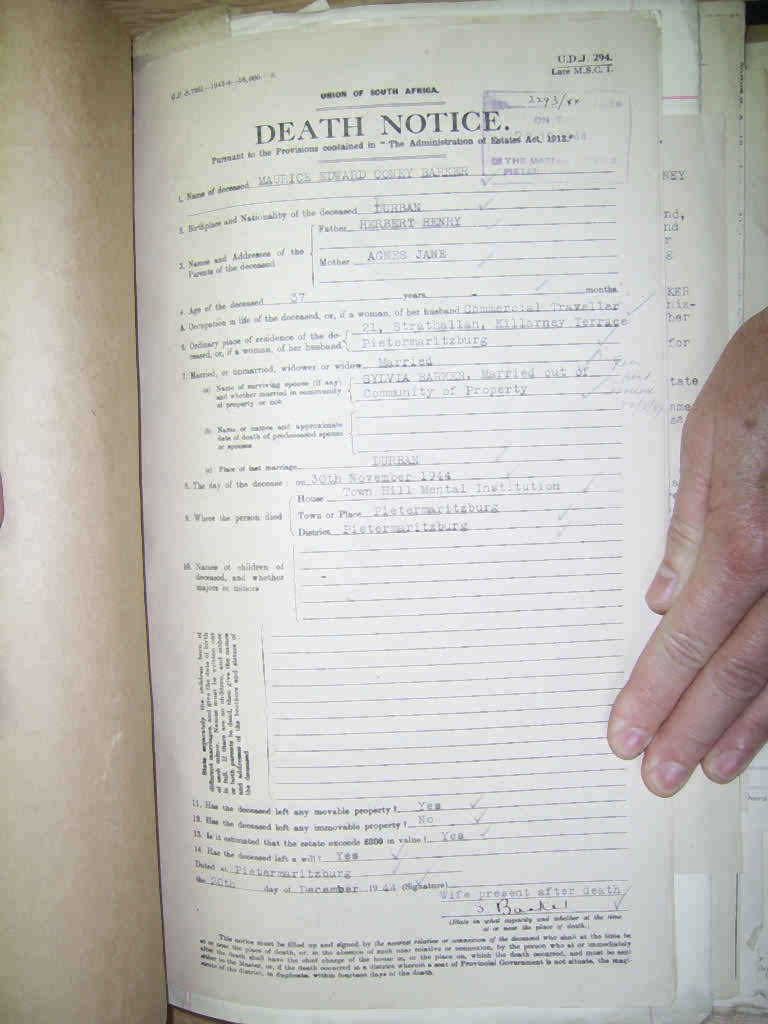 U.D.J. 294.
Late M.S.C. 1.
UNION OF SOUTH AFRICA.
2293/44
DEATH NOTICE.
Pursuant to the Provisions contained in "The Administration of Estates Act, 1913."
1. Name of deceased MAURICE EDWARD CONEY BARKER
2. Birthplace and Nationality of the deceased DURBAN
3. Names and Addresses of the Parents of the deceased
Father HERBERT HENRY
Mother AGNES JANE
4. Age of the deceased 37 years - months
5. Occupation in life of the deceased, or, if a woman, of her husband Commercial Traveller
6. Ordinary place of residence of the deceased, or, if a woman, of her husband
21, Strathallan, Killarney Terrace
Pietermaritzburg
7. Married, or unmarried, widower or widow Married
(a) Name of surviving spouse (if any) and whether married in community of property or not
SYLVIA BARKER, Married out of
Community of Property
(b) Name or names and approximate date of death of predeceased spouse or spouses
(c) Place of last marriage DURBAN
8. The day of the decease: on 30th November 1944
9. Where the person died
House Town Hill Mental Institution
Town or Place Pietermaritzburg
District Pietermaritzburg
10. Names of children of deceased, and whether majors or minors
-
State separately the children born of
different marriages and give the date of birth
of each minor. Names must be written out
in full. If there are no children, and either
or both parents be dead, then give the names
and addresses of the brothers and sisters of
the deceased
11. Has the deceased left any movable property? Yes
12. Has the deceased left any immovable property? No
13. Is it estimated that the estate exceeds £300 in value? Yes
14. Has the deceased left a will? Yes
Dated at Pietermaritzburg
the 20th day of December 1944 (Signature)
Wife present after death
S. Barker
(State in what capacity and whether at the time
or near the place of death.)
This notice must be filled up and signed by the nearest relation or connexion of the deceased who shall at the time be
at or near the place of death, or, in the absence of such near relative or connexion, by the person who at or immediately
after the death shall have the chief charge of the house in, or the place on, which the death occurred, and must be sent
either to the Master, or, if the death occurred in a district wherein a seat of Provincial Government is not situate, the magistrate of the district, in duplicate, within fourteen days of the death.